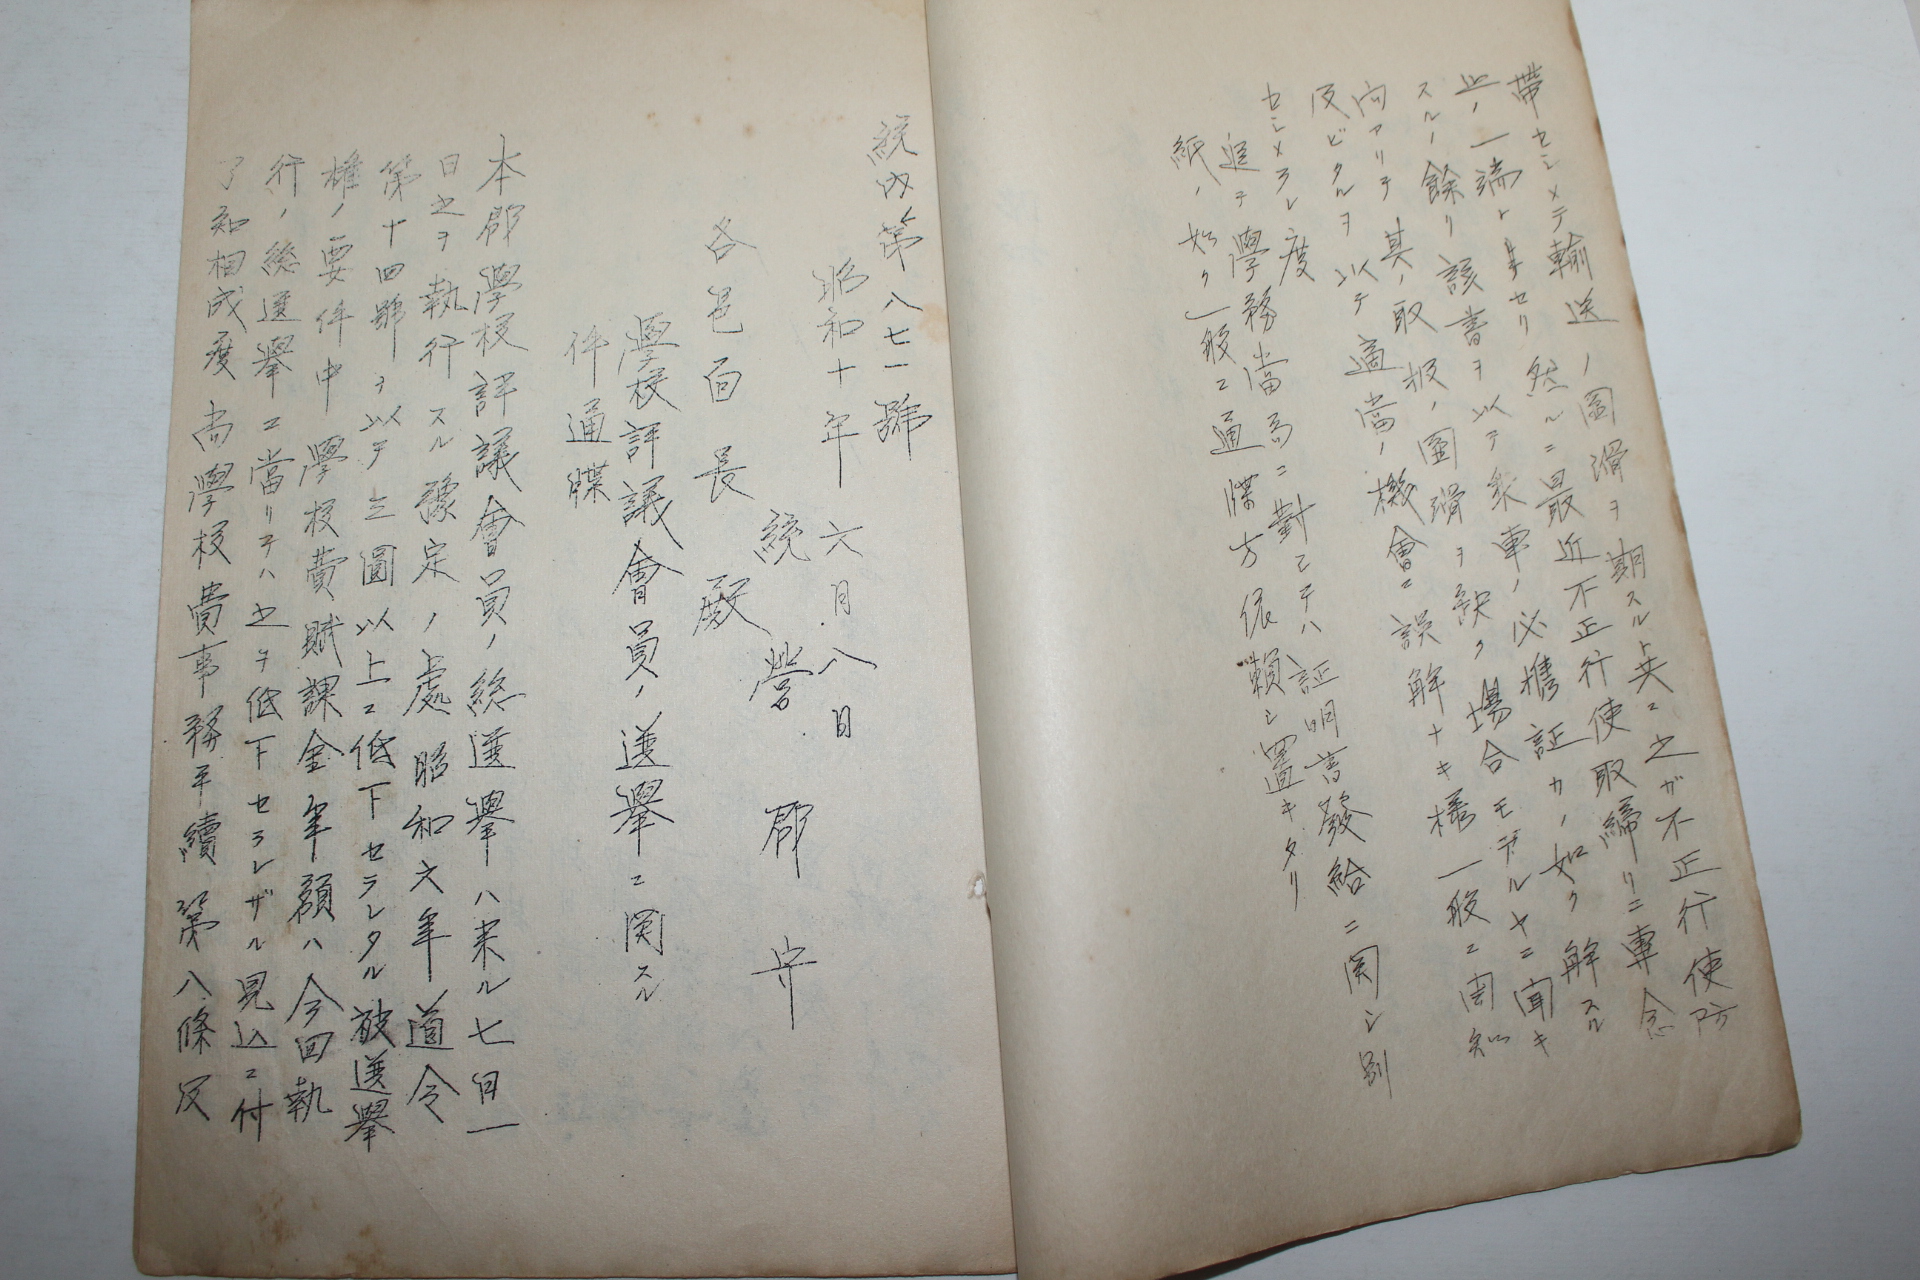 帯セシメテ輸送ノ圓滑ヲ期スルト共ニ之ガ不正行使防
止ノ一端トナセリ然ルニ最近不正行使取締リニ専念
スルノ餘リ該書ヲ以テ乗車ノ必携証カノ如ク解スル
向アリテ其ノ取扱ノ圓滑ヲ缺ク場合モアルヤニ聞キ
及ビタルヲ以テ適當ノ機會ニ誤解ナキ様一般ニ周知
セシメラレ度
追テ學務當局ニ對シテハ証明書發給ニ関シ別
紙ノ如ク一般ニ通牒方依賴シ置キタリ
統内第八七一號
昭和十年六月八日
統營郡守
各邑面長殿
學校評議會員ノ選擧ニ関スル
件通牒
本郡學校評議會員ノ総選擧ハ来ル七月一
日之ヲ執行スル豫定ノ處昭和六年道令
第十四號ヲ以テ三圓以上ニ低下セラレタル被選擧
權ノ要件中學校費賦課金年額ハ今回執
行ノ総選擧ニ當リテハ之ヲ低下セラレザル見込ニ付
了知相成度尚學校費事務手續第八條及